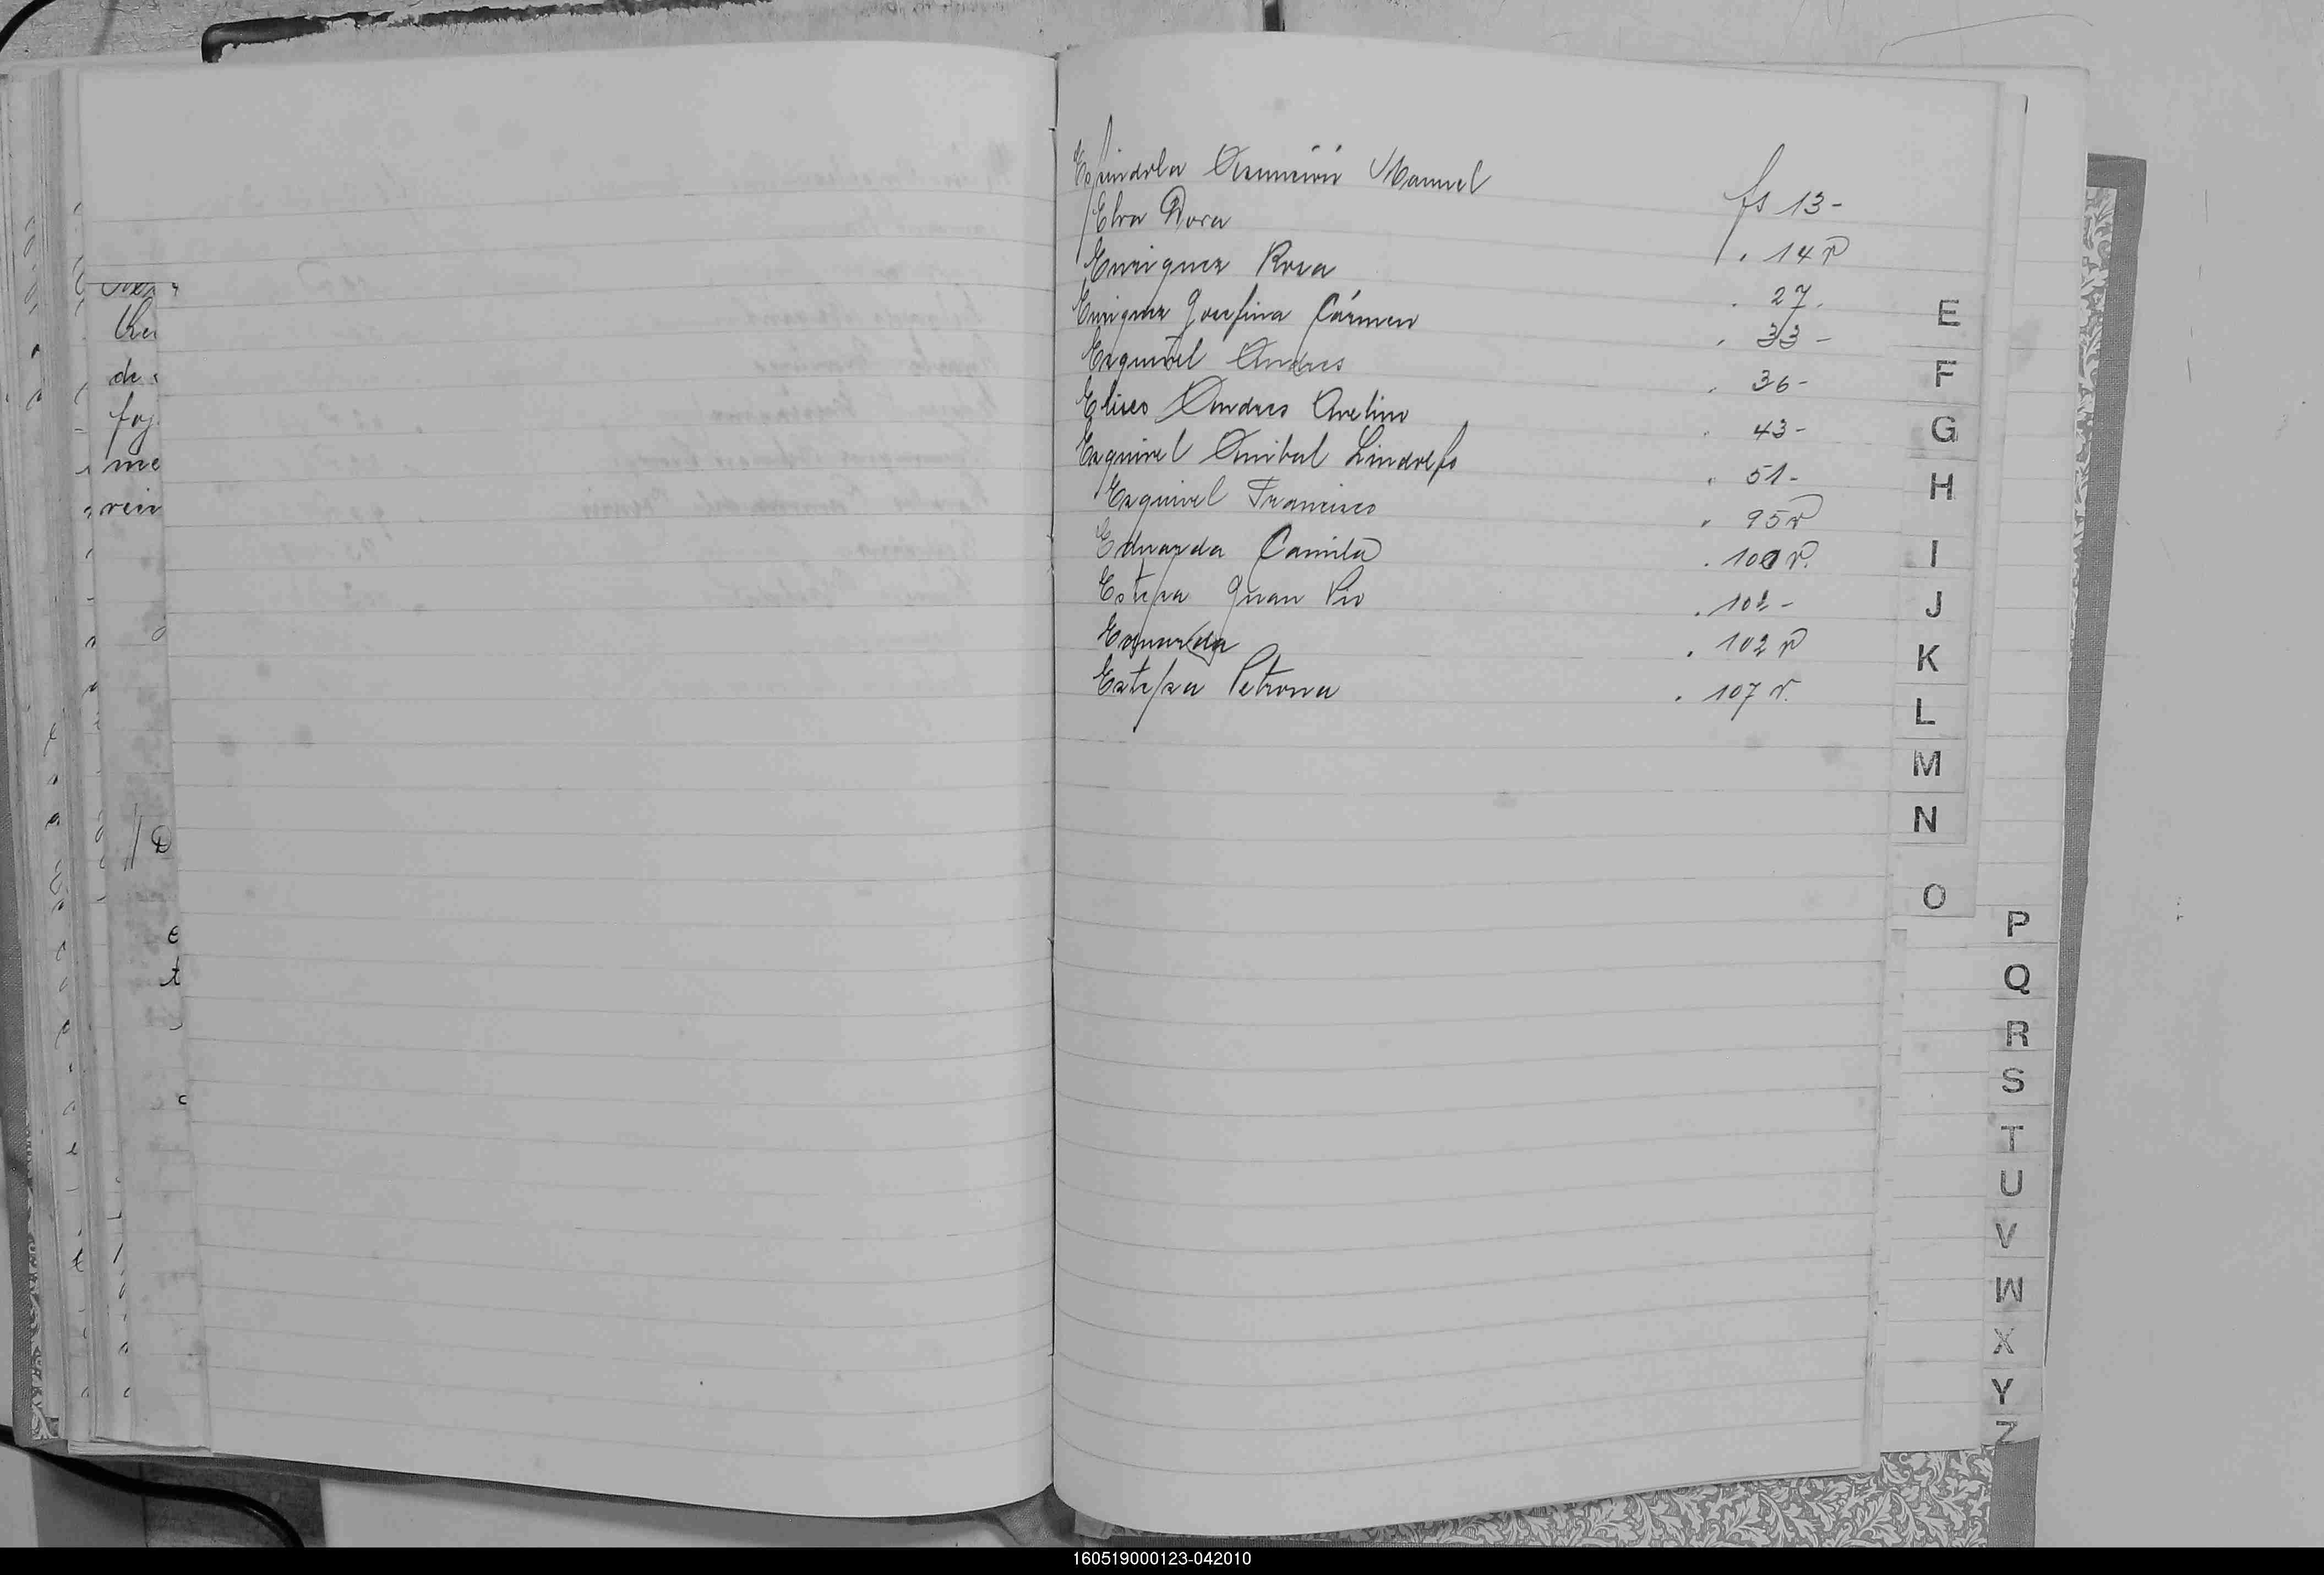 Espindola Asunción Manuel fs 13-
Elva Dora . 14 v
Enriquez Rosa . 27.
Enriquez Josefina Cármen . 33-
Esquivel Andres . 36-
Eliseo Andres Avelino . 43-
Esquivel Anibal Lindolfo " 51-
Esquivel Francisco " 95 v
Eduarda Camila . 100 v.
Estepa Juan Pio . 101-
. 102 v
Estepa Petrona . 107 v.
E
F
G
H
I
J
K
L
M
N
O
P
Q
R
S
T
U
V
W
X
Y
Z
160519000123-042010